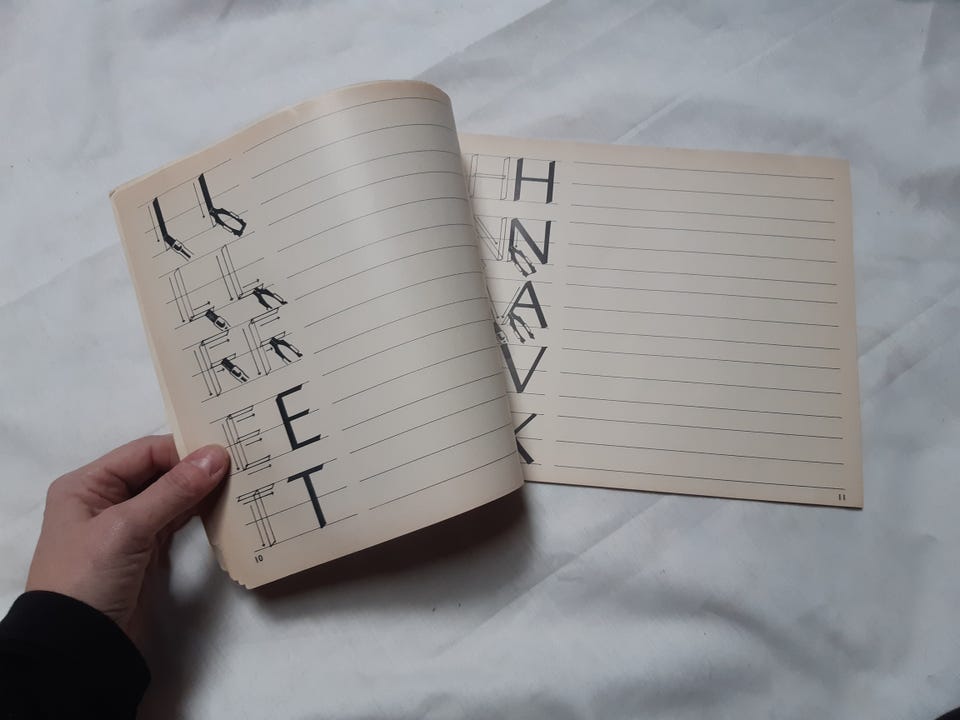 L L
F F
E E
T T
10
H H
N N
A
V
K
11